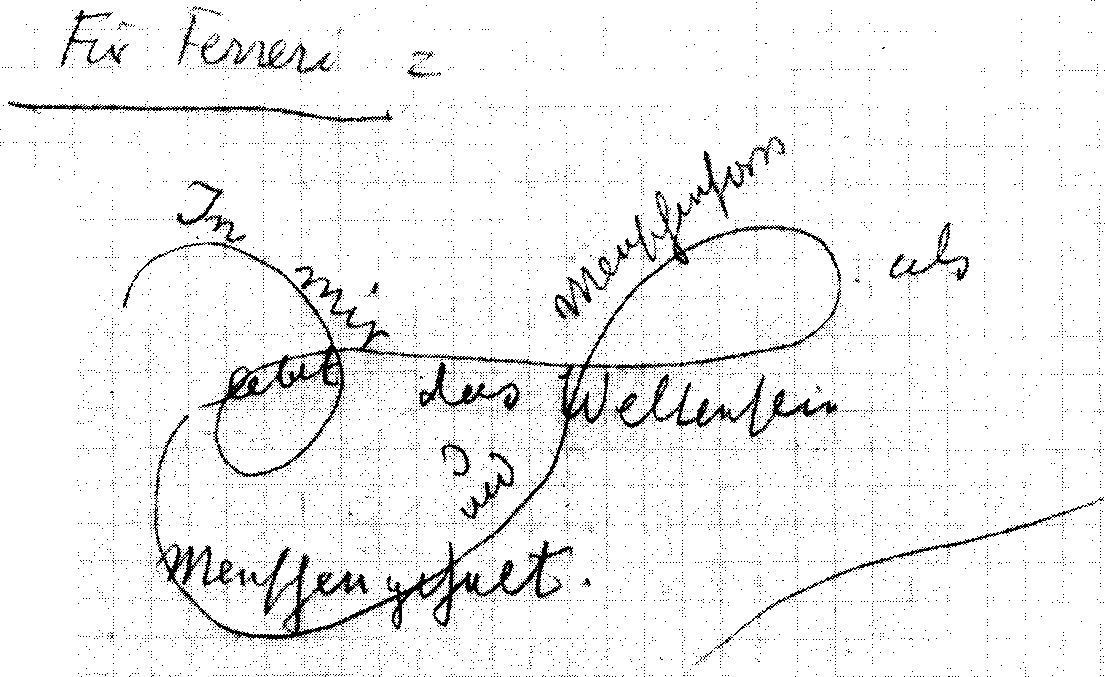 Für Ferreri
In
mir
lebt das Weltensein
als
Menschenform
und
Menschengestalt.